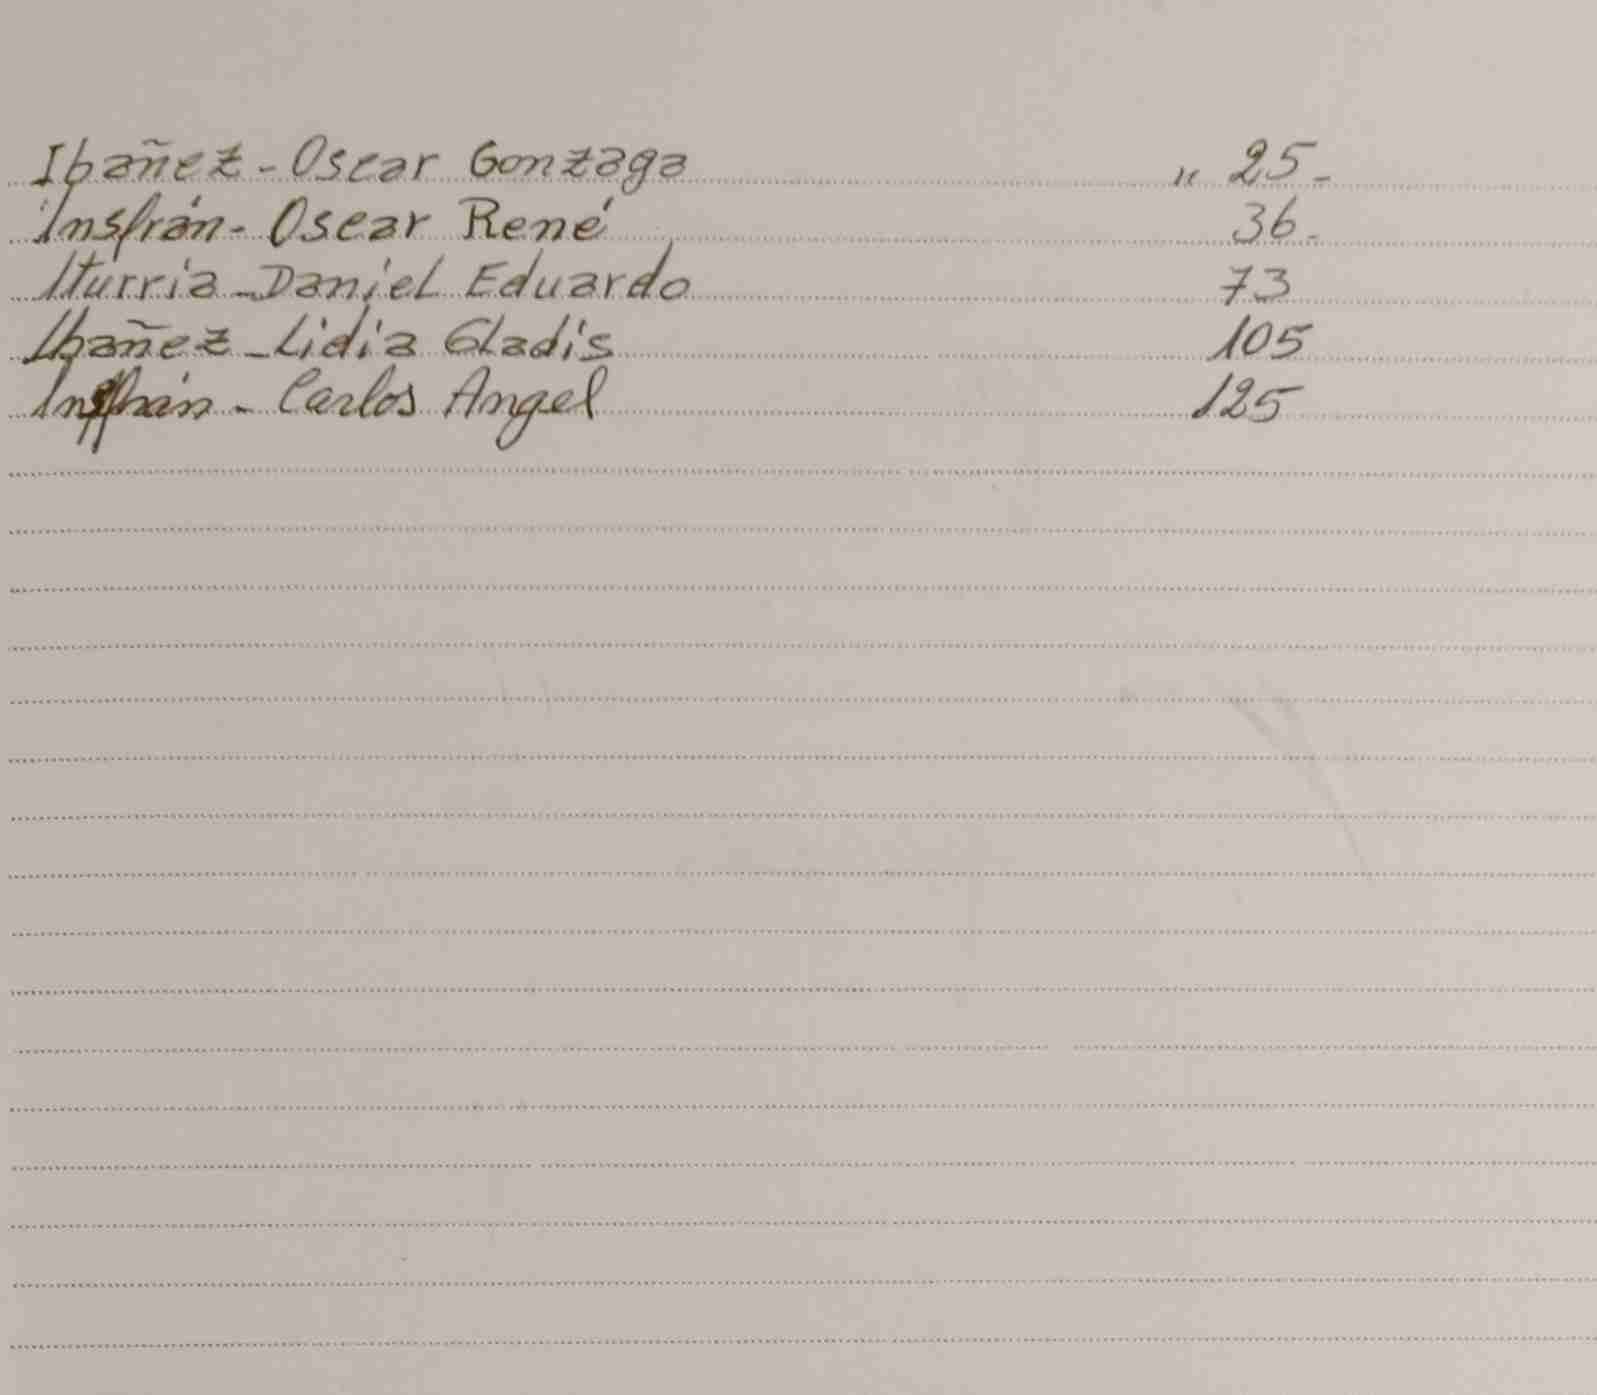 Ibañez - Oscar Gonzaga " 25 -
Insfrán - Oscar René 36 -
Iturria - Daniel Eduardo 73
Ibañez - Lidia Gladis 105
Insfrán - Carlos Angel 125